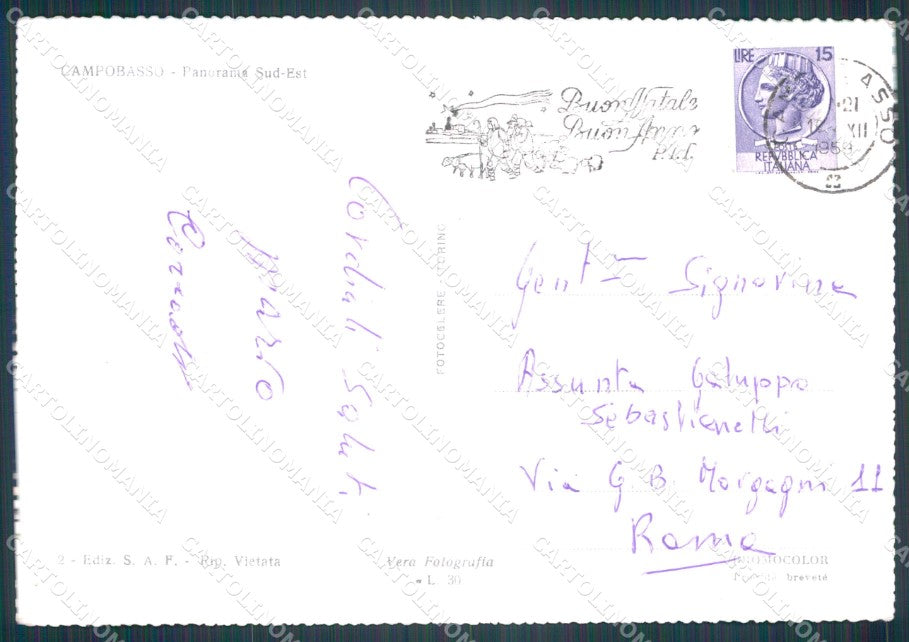 CAMPOBASSO - Panorama Sud-Est
Buon Natale
Buon Anno
P.T.
LIRE 15
POSTE
REPUBBLICA
ITALIANA
ASSO
21
XII
1958
Cordiali Saluti
FOTOCELERE - TORINO
Gent Signorina
Assunta Galuppo
Sebastianelli
Via G B Morgagni 11
Roma
2 - Ediz. S. A. F. - Rip. Vietata
Vera Fotografia
L. 30
BROMOCOLOR
breveté
CARTOLINOMANIA